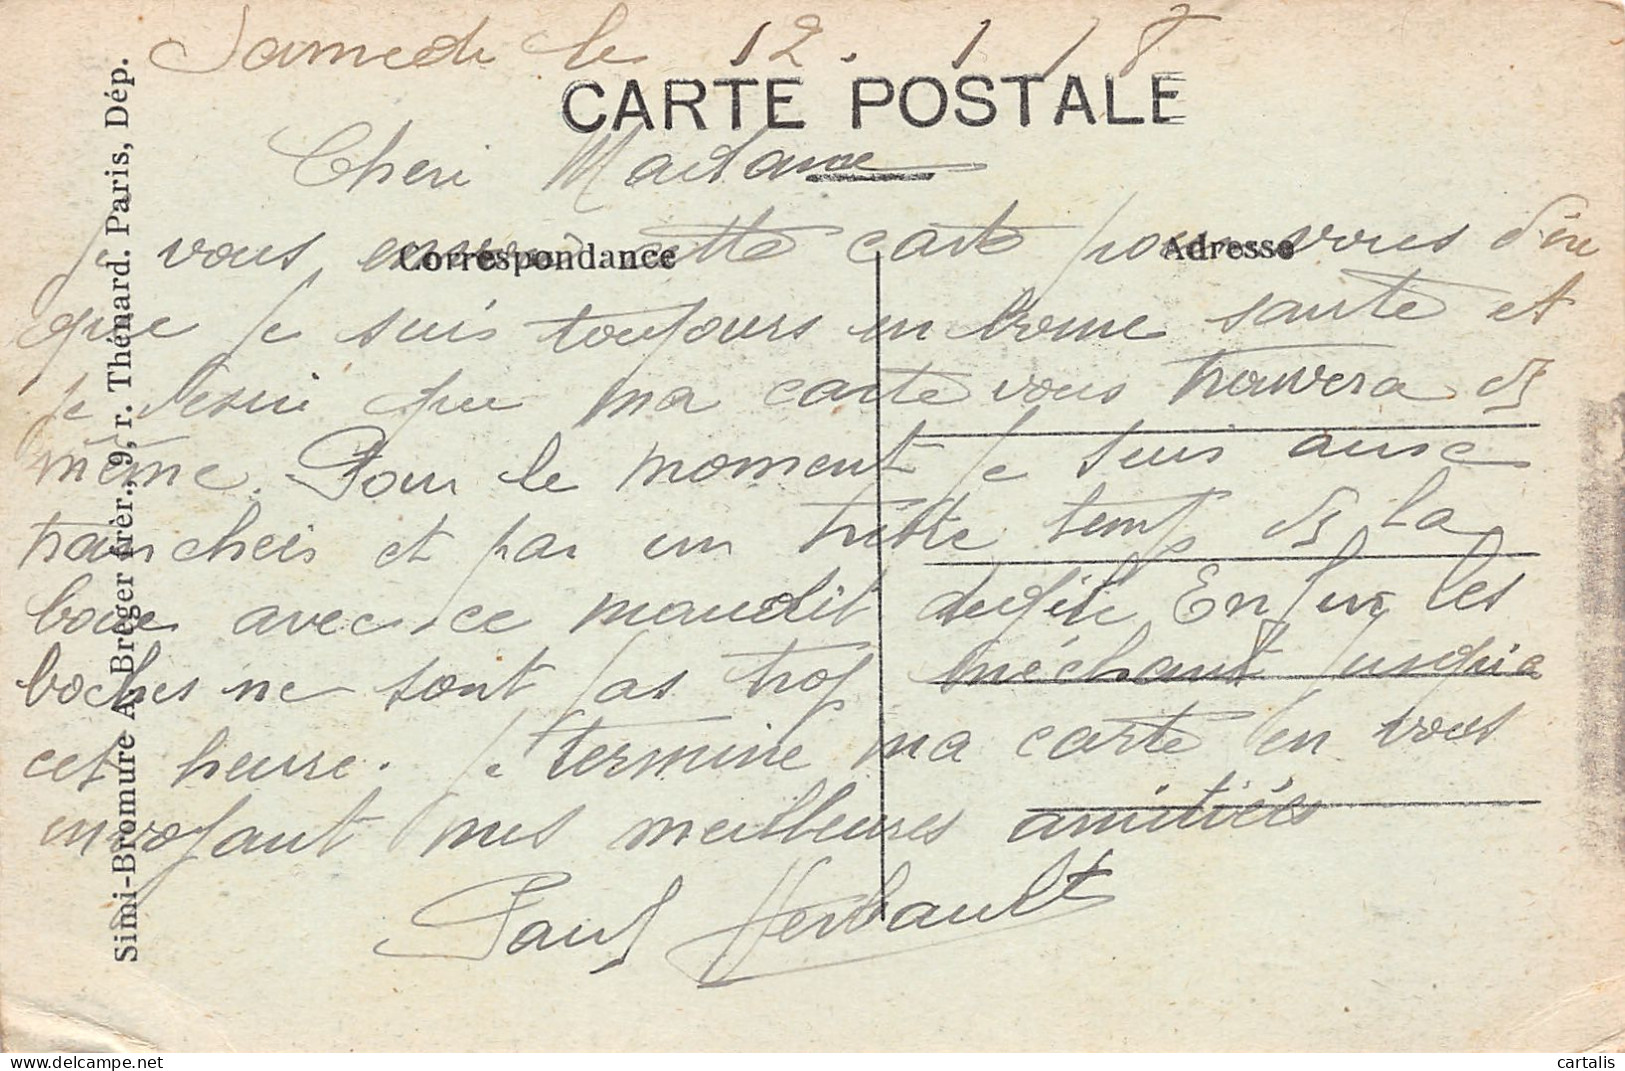 Samedi le 12. 1 18
CARTE POSTALE
Cheri Madame
Je vous envoi cette carte pour vous dire
Correspondance
Adresse
que je suis toujours en bonne sante et
je desire que ma carte vous trouvera de
même. Pour le moment je suis aux
trancheis et par un triste temp de la
boue avec ce maudit degèle Enfin les
boches ne sont pas trop méchant jusqu'a
cet heure. Je termine ma carte en vous
envoyant mes meilleures amitiées
Paul Herbault
Simi-Bromure A. Breger frèr., 9, r. Thénard. Paris, Dép.
cartalis